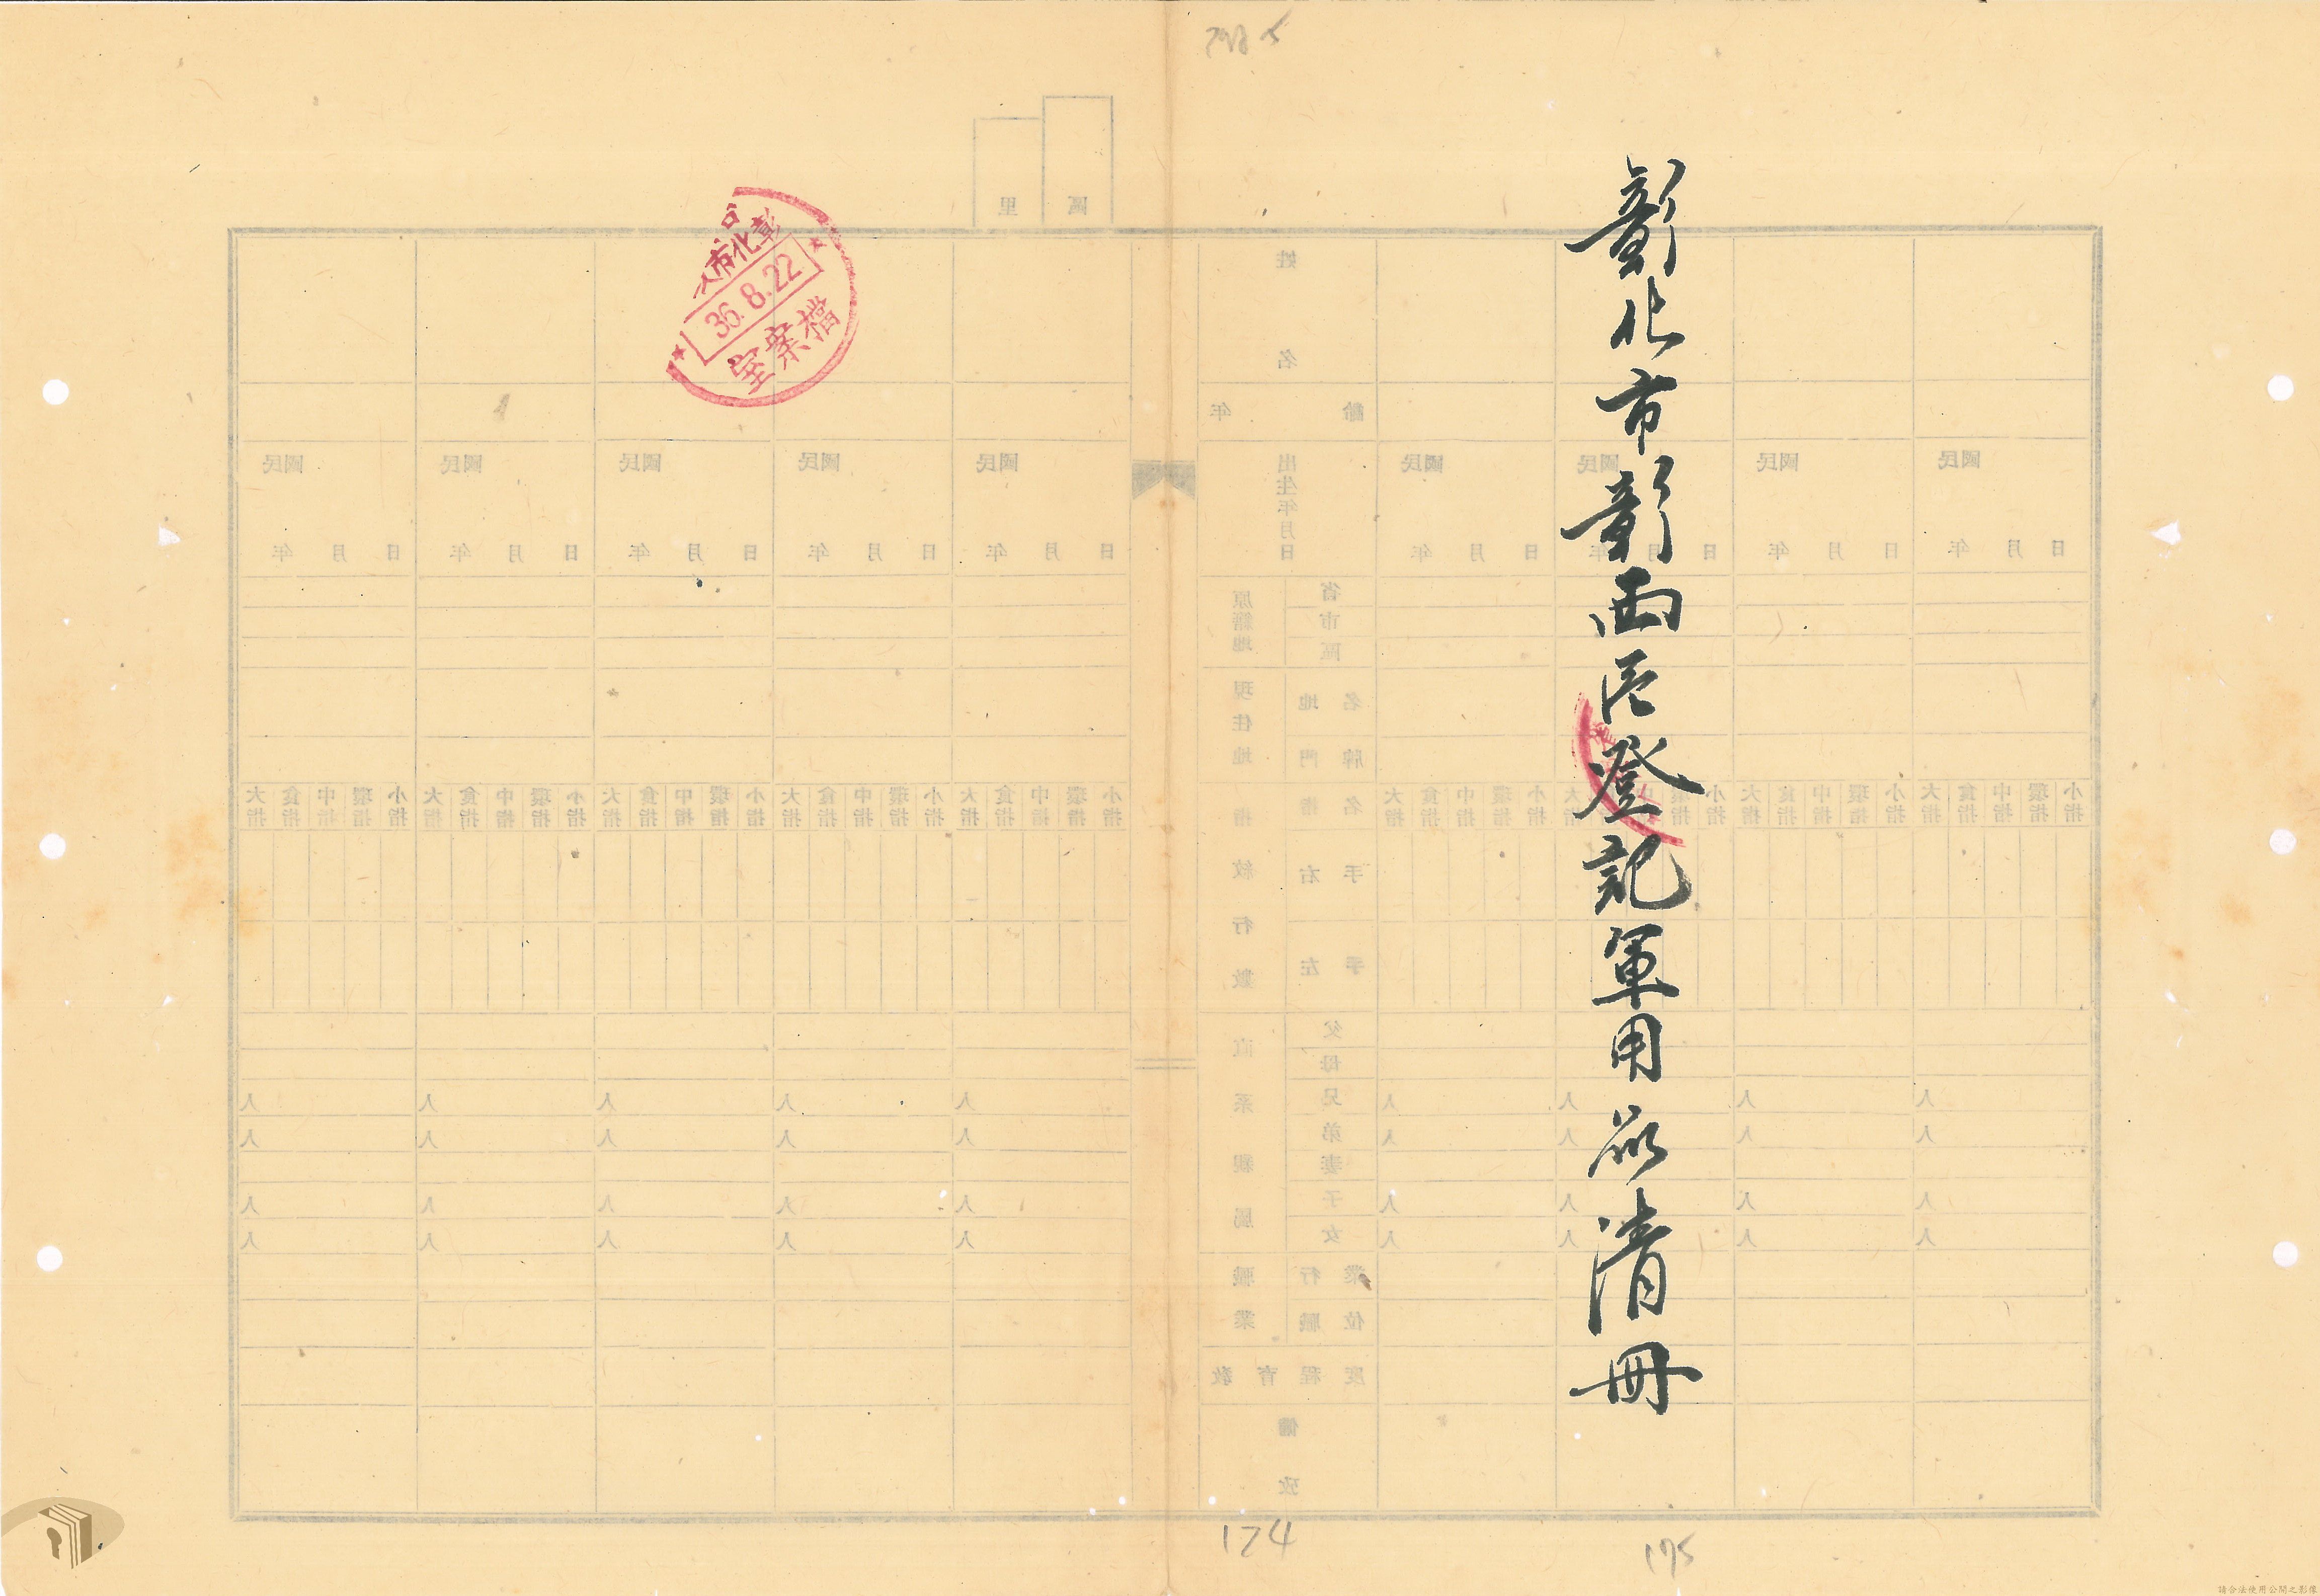 彰化市彰西區登記軍用品清冊
彰化市人
36.8.22
檔案室
區
里
姓名
年齡
出生年月日
原籍地
省
市
區
現住地
地名
門牌
指紋行數
指名
右手
左手
直系親屬
父
母
兄
弟
妻
子
女
職業
行業
職位
教育程度
備攷
國民
年 月 日
大指 食指 中指 環指 小指
人
人
人
人
174
175
請合法使用公開之影像